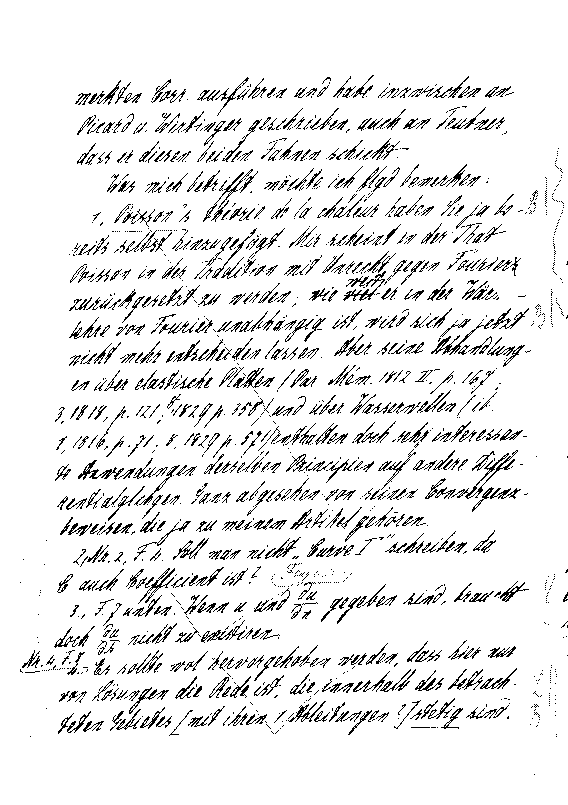 merkten Corr. ausführen und habe inzwischen an
Picard u. Wirtinger geschrieben, auch an Teubner,
dass er diesen beiden Fahnen schickt.
Was mich betrifft, möchte ich flgd bemerken:
1, Poisson's théorie de la chaleur haben Sie ja be-
reits selbst hinzugefügt. Mir scheint in der That
Poisson in der Tradition mit Unrecht gegen Fourier
zurückgesetzt zu werden, wie weit er in der Wär-
lehre von Fourier unabhängig ist, wird sich ja jetzt
nicht mehr entscheiden lassen. Aber seine Abhandlung-
en über elastische Platten (Par Mém. 1812 II. p. 167
3, 1818, p. 121, 8, 1829 p. 358) und über Wasserwellen (ib.
1, 1816, p. 71, 8, 1829 p. 571) enthalten doch sehr interessan-
te Anwendungen derselben Principien auf andere Diffe-
rentialglchgen. Ganz abgesehen von seinen Convergenz-
beweisen, die ja zu meinem Artikel gehören.
2, Nr. 2, F. 4. Soll man nicht „Curve Γ" schreiben, da
C auch Coefficient ist?
3., F. 7 unten. Wenn u und ∂u/∂n gegeben sind, braucht
doch ∂u/∂s nicht zu existiren.
Nr. 4, F. 8
4. Es sollte wol hervorgehoben werden, dass hier nur
von Lösungen die Rede ist, die innerhalb des betrach-
teten Gebietes [mit ihren 1. Ableitungen?] stetig sind.